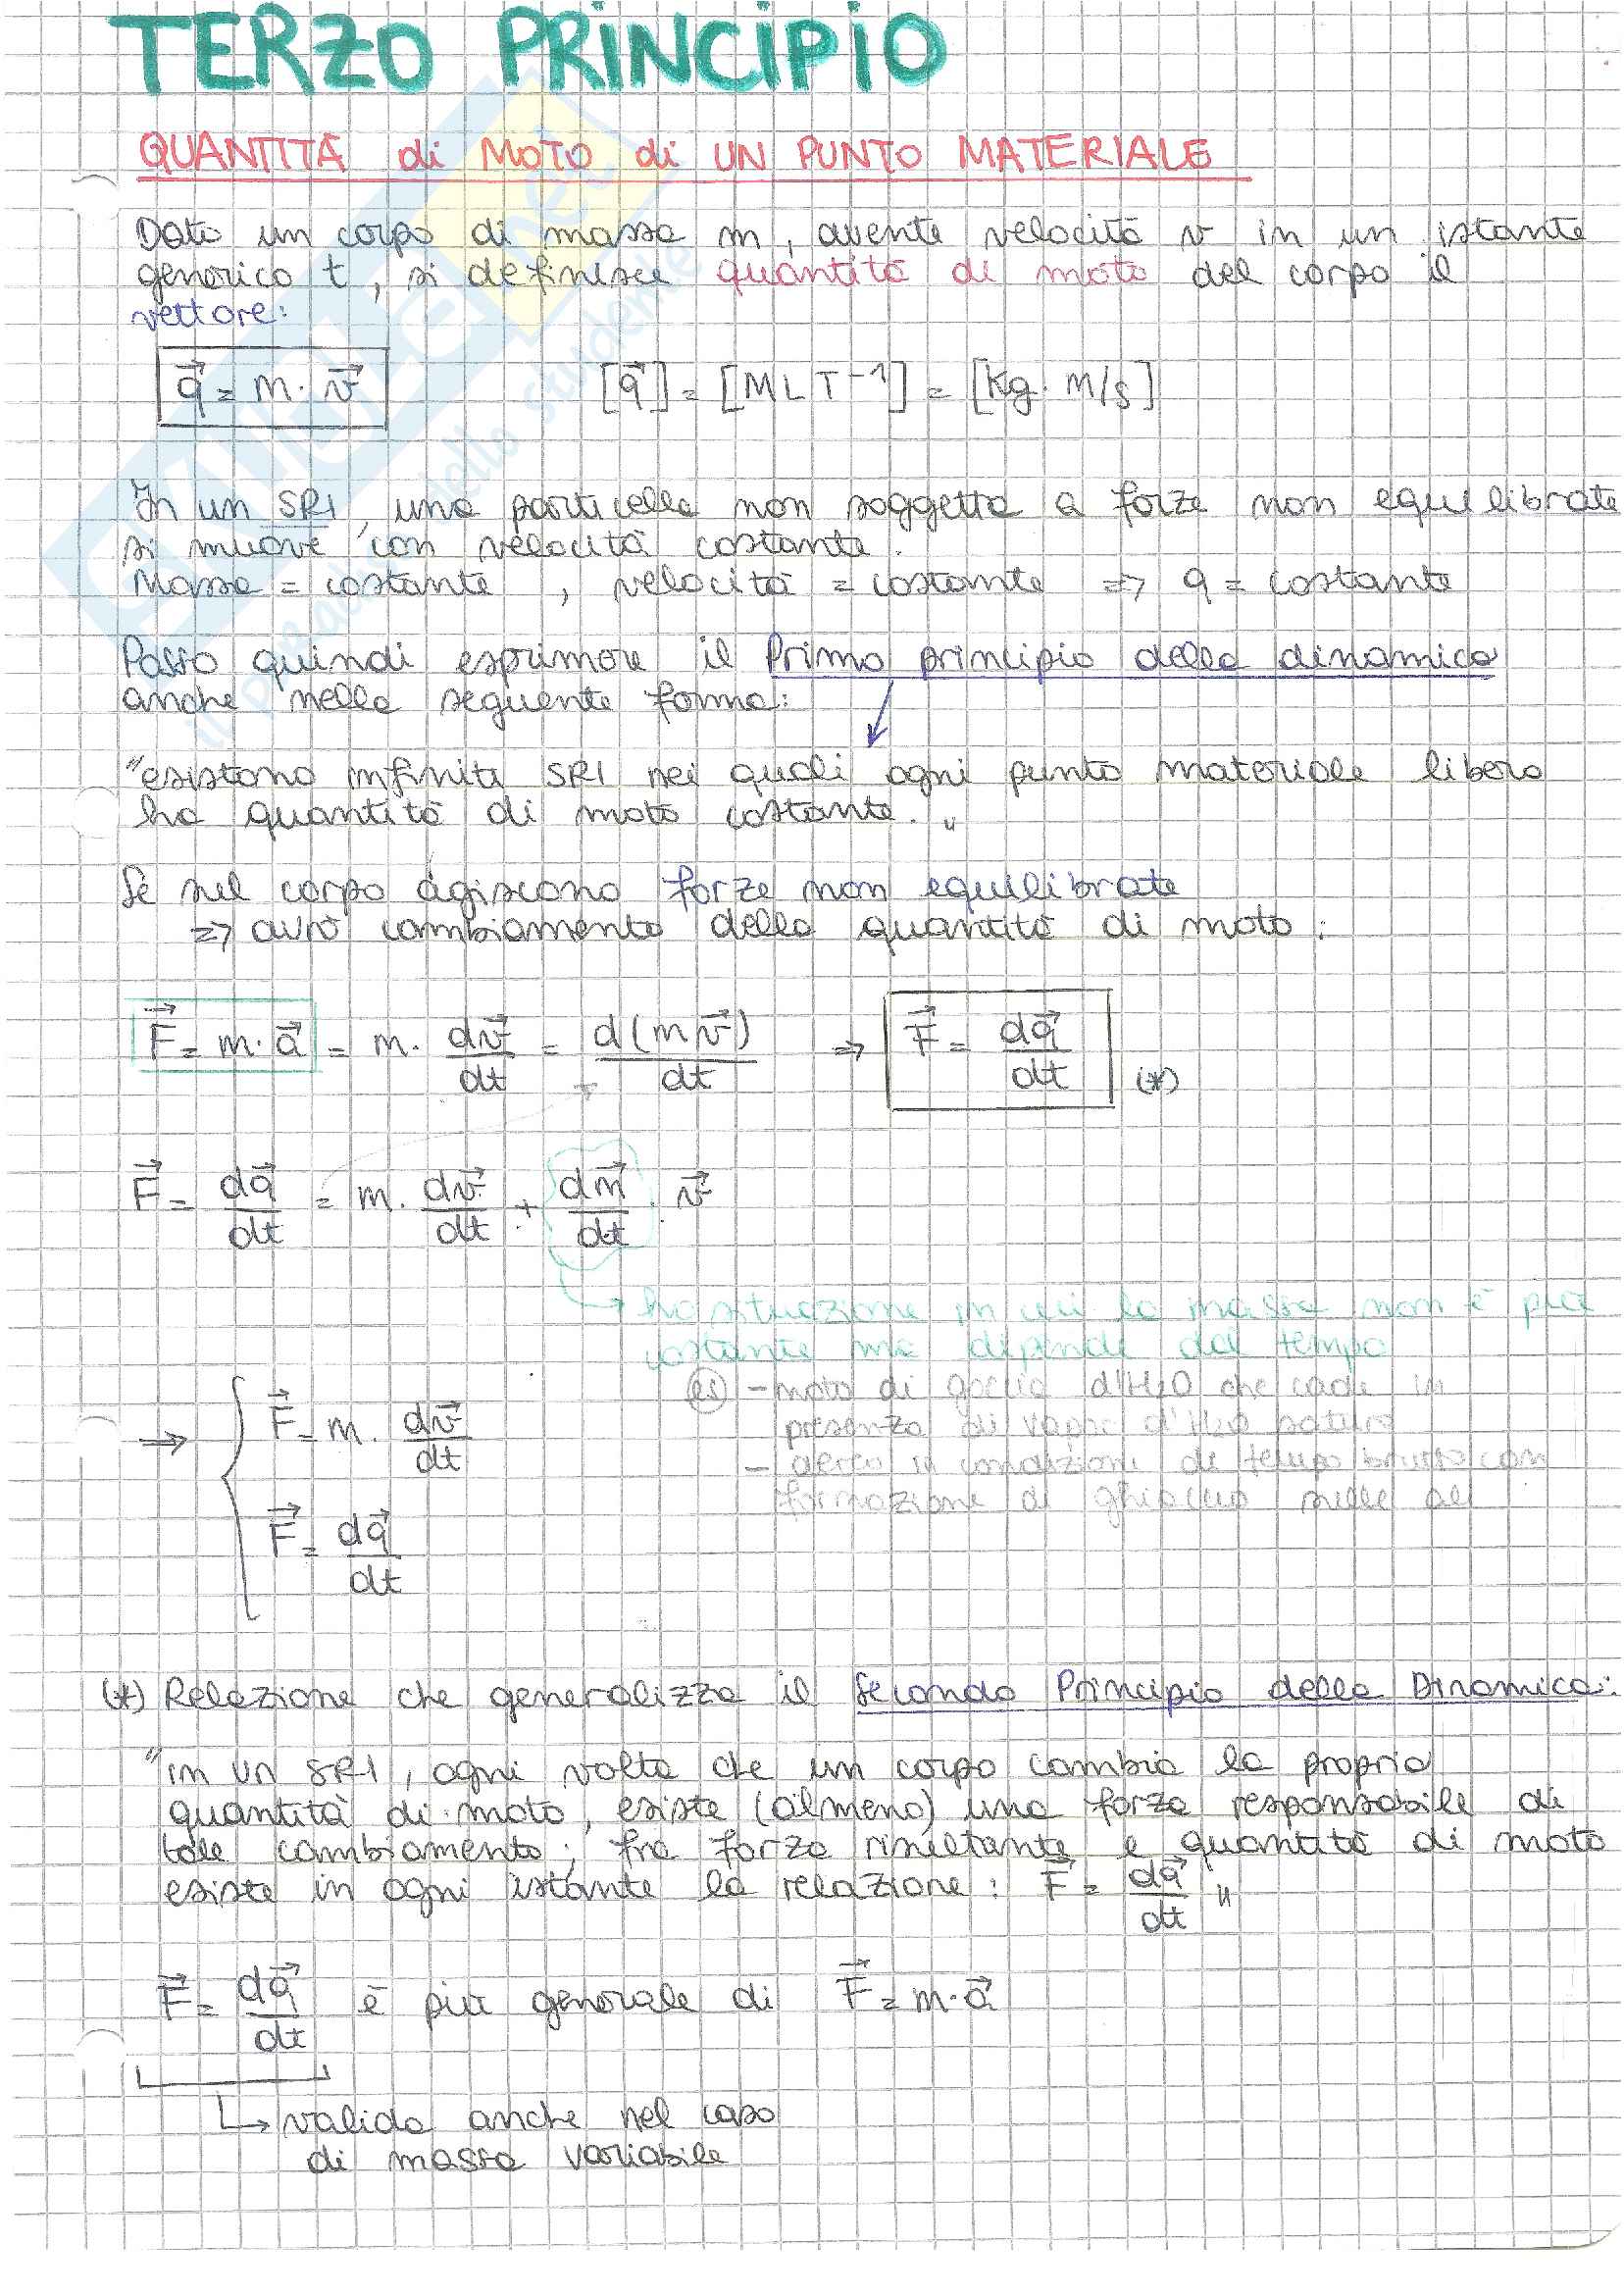 TERZO PRINCIPIO
QUANTITÀ di MOTO di UN PUNTO MATERIALE
Dato un corpo di massa m, avente velocità v in un istante
generico t, si definisce quantità di moto del corpo il
vettore:
q⃗ = m · v⃗ [q⃗] = [M L T⁻¹] = [Kg · m/s]
In un SRI, una particella non soggetta a forze non equilibrate
si muove con velocità costante.
Massa = costante , velocità = costante => q = costante
Posso quindi esprimere il Primo principio della dinamica
anche nella seguente forma:
"esistono infiniti SRI nei quali ogni punto materiale libero
ha quantità di moto costante. "
Se sul corpo agiscono forze non equilibrate
=> avrò cambiamento della quantità di moto:
F⃗ = m · a⃗ = m · dv⃗/dt = d(mv⃗)/dt => F⃗ = dq⃗/dt (*)
F⃗ = dq⃗/dt = m · dv⃗/dt + dm⃗/dt · v⃗
→ ho situazione in cui la massa non è più
costante ma dipende dal tempo
es - moto di goccia d'H2O che cade in
presenza di vapor d'H2O saturo
- aereo in condizioni di tempo brutto con
formazione di ghiaccio sulle ali
→ { F⃗ = m · dv⃗/dt
F⃗ = dq⃗/dt
(*) Relazione che generalizza il Secondo Principio della Dinamica:
"in un SRI, ogni volta che un corpo cambia la propria
quantità di moto, esiste (almeno) una forza responsabile di
tale cambiamento; fra forza risultante e quantità di moto
esiste in ogni istante la relazione: F⃗ = dq⃗/dt "
F⃗ = dq⃗/dt è più generale di F⃗ = m · a⃗
↳ valida anche nel caso
di massa variabile